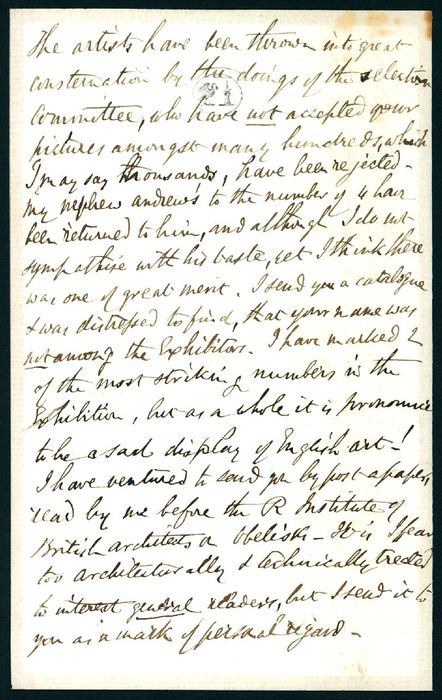 The artists have been thrown into great
consternation by the doings of the selection
21
Committee, who have not accepted your
pictures amongst many hundreds, which
I may say thousands, have been rejected -
my nephew andrew's to the number of 4 have
been returned to him, and although I do not
sympathise with his taste, yet I think there
was one of great merit. I send you a catalogue
& was distressed to find, that your name was
not among the Exhibitors. I have marked 2
of the most striking numbers in the
Exhibition, but as a whole it is pronounce
to be a sad display of English art -!
I have ventured to send you by post a paper,
read by me before the R Institute of
British architects on Obelisks - It is I fear
too architecturally & technically treated
to interest general readers, but I send it to
you as a mark of personal regard -